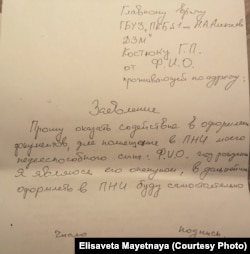 Главному врачу
ГБУЗ „ПКБ №1
ДЗМ"
Костюку Г.П.
от Ф.И.О.
проживающей по адресу:
Заявление
Прошу оказать содействие в оформлен
документов, для помещения в ПНИ моего
недееспособного сына - Ф.И.О. год рожден
Я являюсь его опекуном, в дальнейшем
оформлять в ПНИ буду самостоятельно
Число Подпись
Elisaveta Mayetnaya (Courtesy Photo)